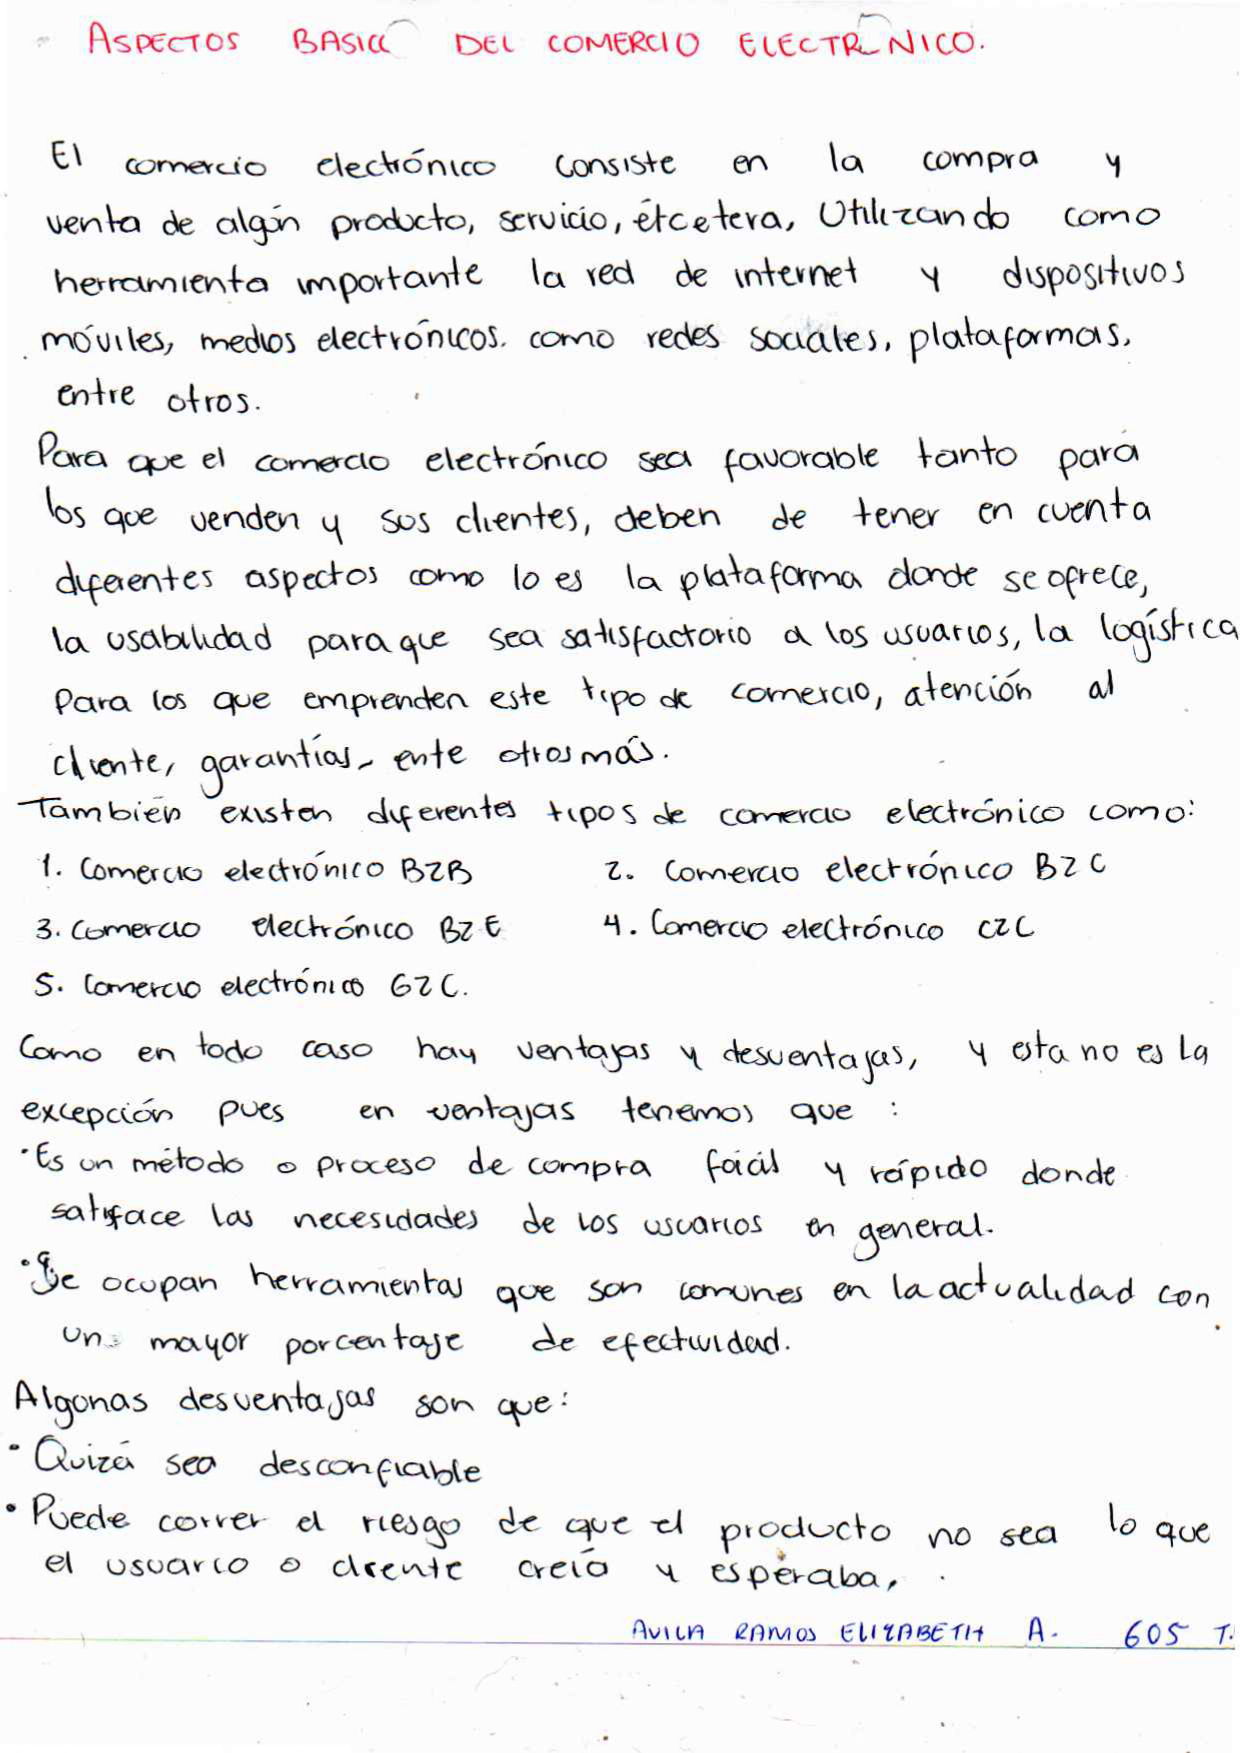 ASPECTOS BASICO DEL COMERCIO ELECTRÓNICO.
El comercio electrónico consiste en la compra y
venta de algún producto, servicio, étcetera, Utilizando como
herramienta importante la red de internet y dispositivos
móviles, medios electrónicos. como redes sociales, plataformas,
entre otros.
Para que el comercio electrónico sea favorable tanto para
los que venden y sus clientes, deben de tener en cuenta
diferentes aspectos como lo es la plataforma donde se ofrece,
la usabilidad para que sea satisfactorio a los usuarios, la logística
Para los que emprenden este tipo de comercio, atención al
cliente, garantías, ente otros más.
También existen diferentes tipos de comercio electrónico como:
1. Comercio electrónico B2B 2. Comercio electrónico B2C
3. Comercio electrónico B2E 4. Comercio electrónico C2C
5. Comercio electrónico G2C.
Como en todo caso hay ventajas y desventajas, y esta no es la
excepción pues en ventajas tenemos que :
· Es un método o proceso de compra fácil y rápido donde
satisface las necesidades de los usuarios en general.
· Se ocupan herramientas que son comunes en la actualidad con
un mayor porcentaje de efectividad.
Algunas desventajas son que:
• Quizá sea desconfiable
• Puede correr el riesgo de que el producto no sea lo que
el usuario o cliente creía y esperaba.
AVILA RAMOS ELIZABETH A. 605 T.